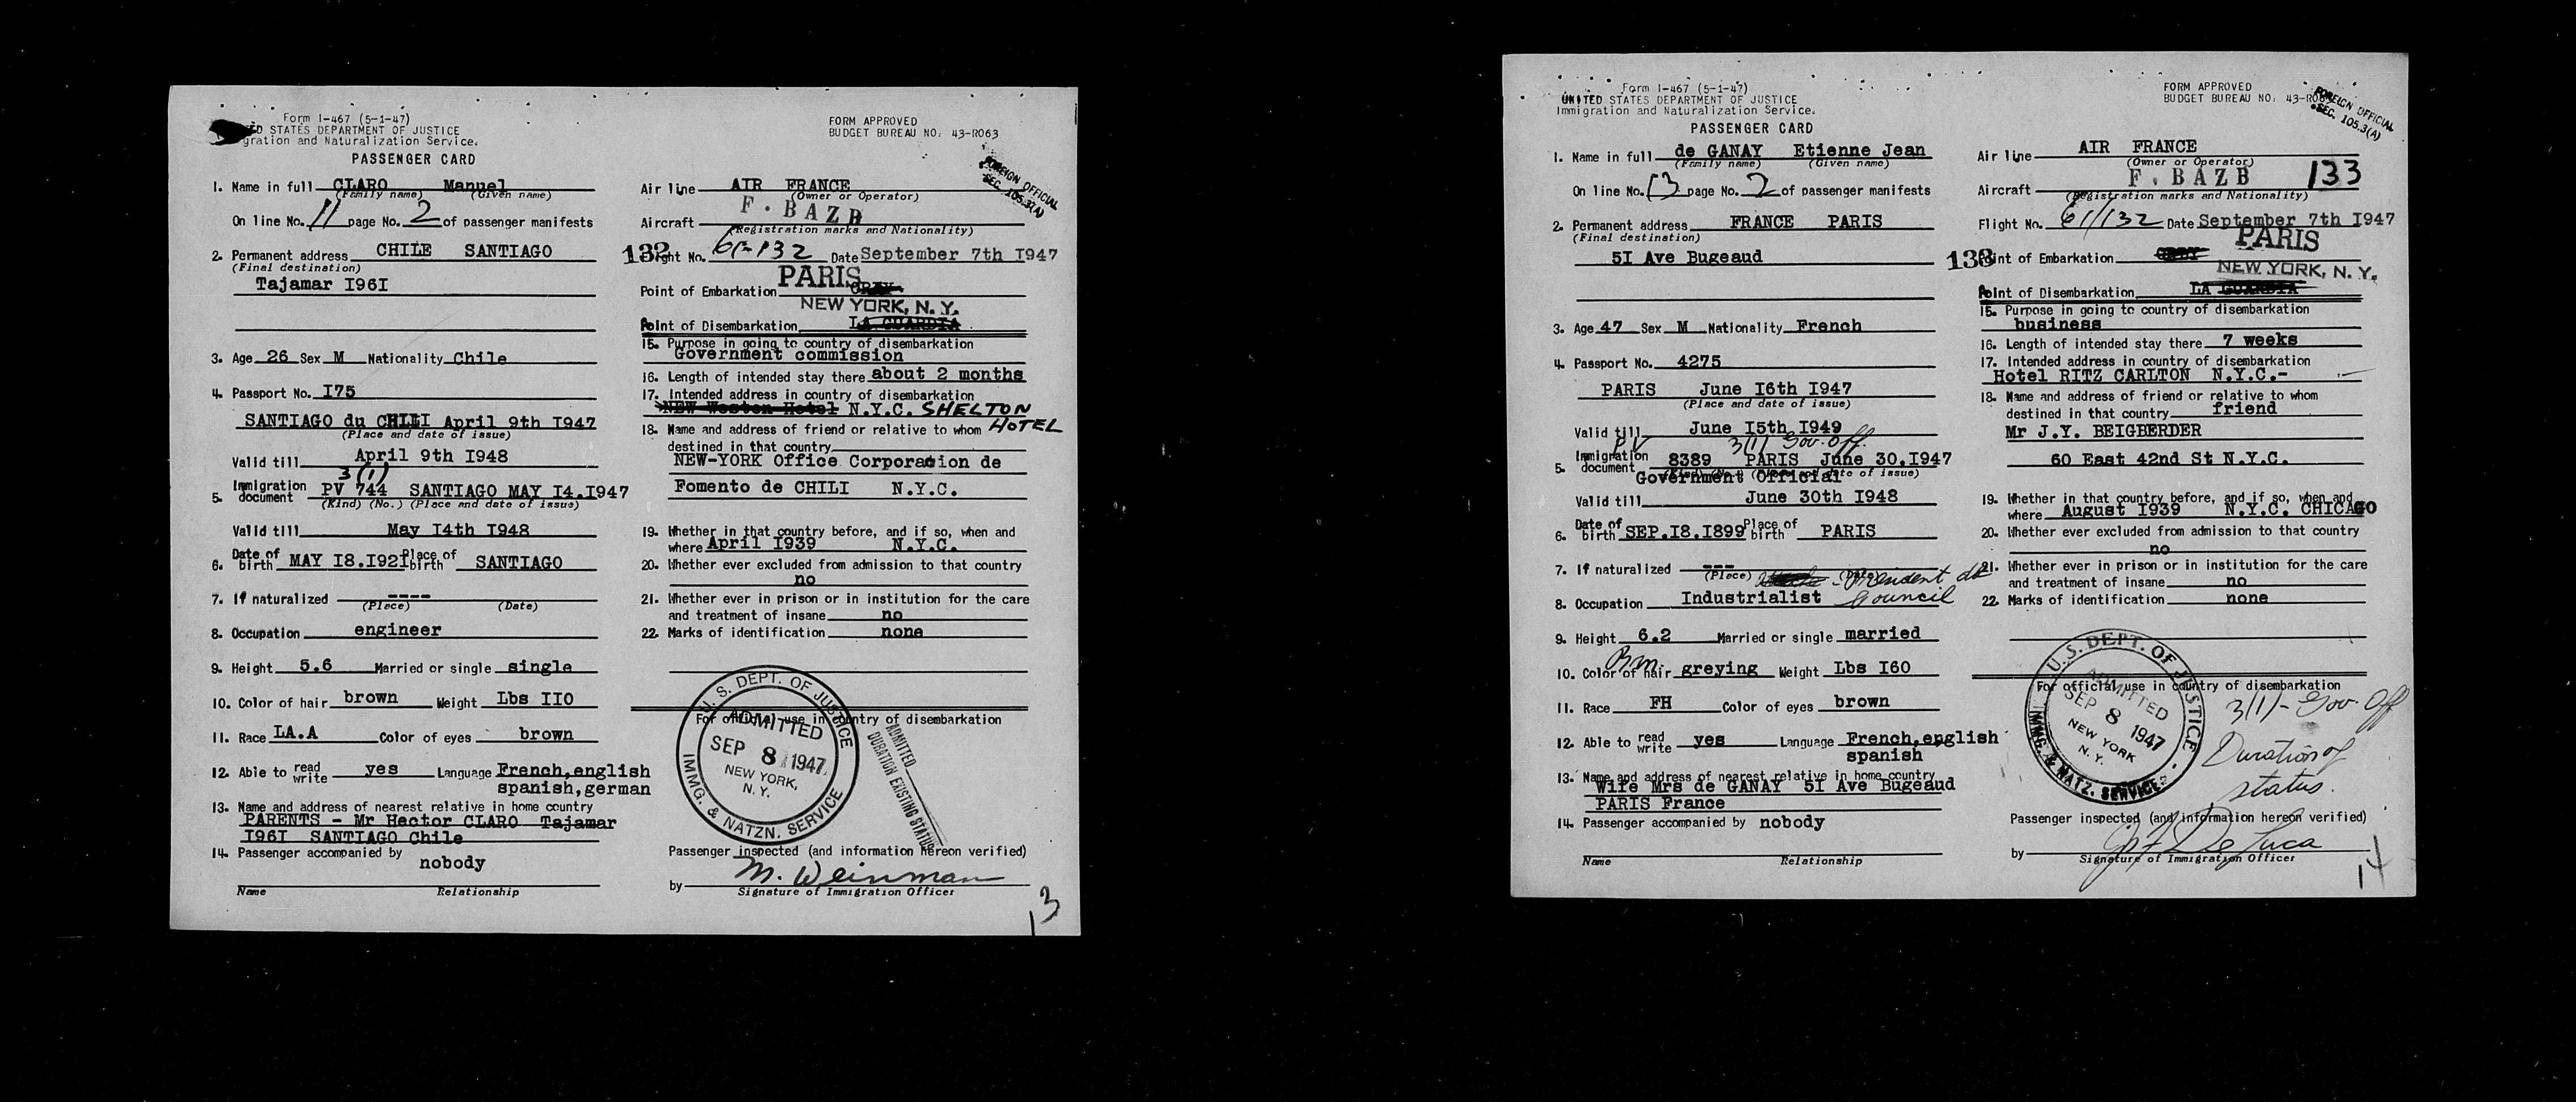 Form I-467 (5-1-47)
STATES DEPARTMENT OF JUSTICE
gration and Naturalization Service.
PASSENGER CARD
1. Name in full CLARO Manuel
(Family name) (Given name)
On line No. 11 page No. 2 of passenger manifests
2. Permanent address CHILE SANTIAGO
(Final destination)
Tajamar I96I
3. Age 26 Sex M Nationality Chile
4. Passport No. I75
SANTIAGO du CHILI April 9th I947
(Place and date of issue)
Valid till April 9th I948
3(1)
5. Immigration document PV 744 SANTIAGO MAY I4.I947
(Kind) (No.) (Place and date of issue)
Valid till May I4th I948
6. Date of birth MAY I8.I92I Place of birth SANTIAGO
7. If naturalized ----
(Place) (Date)
8. Occupation engineer
9. Height 5.6 Married or single single
10. Color of hair brown Weight Lbs II0
11. Race LA.A Color of eyes brown
12. Able to read write yes Language French,english
spanish,german
13. Name and address of nearest relative in home country
PARENTS - Mr Hector CLARO Tajamar
I96I SANTIAGO Chile
14. Passenger accompanied by nobody
Name Relationship
FORM APPROVED
BUDGET BUREAU NO. 43-R063
FOREIGN OFFICIAL
SEC. 105.3(A)
Air line AIR FRANCE
(Owner or Operator)
Aircraft F.BAZB
(Registration marks and Nationality)
133 ght No. 132 Date September 7th I947
PARIS
Point of Embarkation ORLY
NEW YORK, N. Y.
Point of Disembarkation LA GUARDIA
15. Purpose in going to country of disembarkation
Government commission
16. Length of intended stay there about 2 months
17. Intended address in country of disembarkation
NEW Weston Hotel N.Y.C. SHELTON
HOTEL
18. Name and address of friend or relative to whom
destined in that country
NEW-YORK Office Corporacion de
Fomento de CHILI N.Y.C.
19. Whether in that country before, and if so, when and
where April I939 N.Y.C.
20. Whether ever excluded from admission to that country
no
21. Whether ever in prison or in institution for the care
and treatment of insane no
22. Marks of identification none
For official use in country of disembarkation
U. S. DEPT. OF JUSTICE
ADMITTED
SEP 8 1947
NEW YORK,
N. Y.
IMMG. & NATZN. SERVICE
ADMITTED
DURATION EXISTING STATUS
Passenger inspected (and information hereon verified)
by M. Weinman
Signature of Immigration Officer
13
Form I-467 (5-1-47)
UNITED STATES DEPARTMENT OF JUSTICE
Immigration and Naturalization Service.
PASSENGER CARD
1. Name in full de GANAY Etienne Jean
(Family name) (Given name)
On line No. 13 page No. 2 of passenger manifests
2. Permanent address FRANCE PARIS
(Final destination)
5I Ave Bugeaud
3. Age 47 Sex M Nationality French
4. Passport No. 4275
PARIS June I6th I947
(Place and date of issue)
Valid till June I5th I949
PV 3(1) Gov. Off.
5. Immigration document 8389 PARIS June 30.I947
(Kind) (No.) (Place and date of issue)
Government Official
Valid till June 30th I948
6. Date of birth SEP.I8.I899 Place of birth PARIS
7. If naturalized ---
(Place) (Date) President du
8. Occupation Industrialist Council
9. Height 6.2 Married or single married
10. Color of hair Brn. greying Weight Lbs I60
11. Race FH Color of eyes brown
12. Able to read write yes Language French,english
spanish
13. Name and address of nearest relative in home country
Wife Mrs de GANAY 5I Ave Bugeaud
PARIS France
14. Passenger accompanied by nobody
Name Relationship
FORM APPROVED
BUDGET BUREAU NO. 43-R063
FOREIGN OFFICIAL
SEC. 105.3(A)
Air line AIR FRANCE
(Owner or Operator)
Aircraft F.BAZB 133
(Registration marks and Nationality)
Flight No. 61/132 Date September 7th I947
PARIS
133 int of Embarkation
NEW YORK, N. Y.
Point of Disembarkation LA GUARDIA
15. Purpose in going to country of disembarkation
business
16. Length of intended stay there 7 weeks
17. Intended address in country of disembarkation
Hotel RITZ CARLTON N.Y.C.-
18. Name and address of friend or relative to whom
destined in that country friend
Mr J.Y. BEIGBERDER
60 East 42nd St N.Y.C.
19. Whether in that country before, and if so, when and
where August I939 N.Y.C. CHICAGO
20. Whether ever excluded from admission to that country
no
21. Whether ever in prison or in institution for the care
and treatment of insane no
22. Marks of identification none
For official use in country of disembarkation
U.S. DEPT. OF JUSTICE
ADMITTED
SEP 8 1947
NEW YORK
N. Y.
IMMG. & NATZ. SERVICE
3(1)- Gov. Off
Duration of
status.
Passenger inspected (and information hereon verified)
by De Luca
Signature of Immigration Officer
14